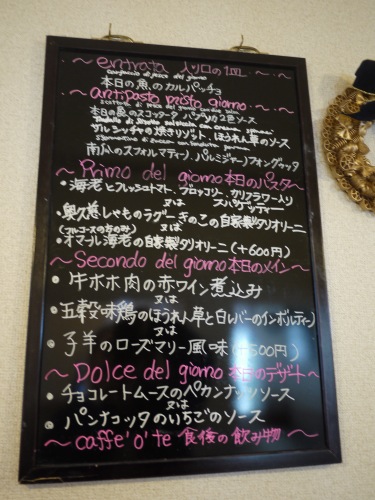 ~entrata 入口の一皿~
carpaccio di pesce del giorno
本日の魚のカルパッチョ
~antipasto misto giorno~
本日の魚のスコッタータ パンチェッタの2色ソース
サルシッチャの焼きリゾット、ほうれん草のソース
南瓜のスフォルマティーノ、パルミジャーノフォンドゥッタ
~Primo del giorno 本日のパスタ~
・海老とフレッシュトマト、ブロッコリー、カリフラワー入り
又は スパゲッティー
・奥久慈しゃものラグーときのこの自家製タリオリーニ
(フルコースの方のみ) 又は
・オマール海老の自家製タリオリーニ(+600円)
~Secondo del giorno 本日のメイン~
・牛ホホ肉の赤ワイン煮込み
又は
・五穀味鶏のほうれん草と白レバーのインボルティーニ
又は
・子羊のローズマリー風味(+500円)
~Dolce del giorno 本日のデザート~
・チョコレートムースのペカンナッツソース
又は
・パンナコッタのいちごのソース
~caffe' o' te 食後の飲み物~